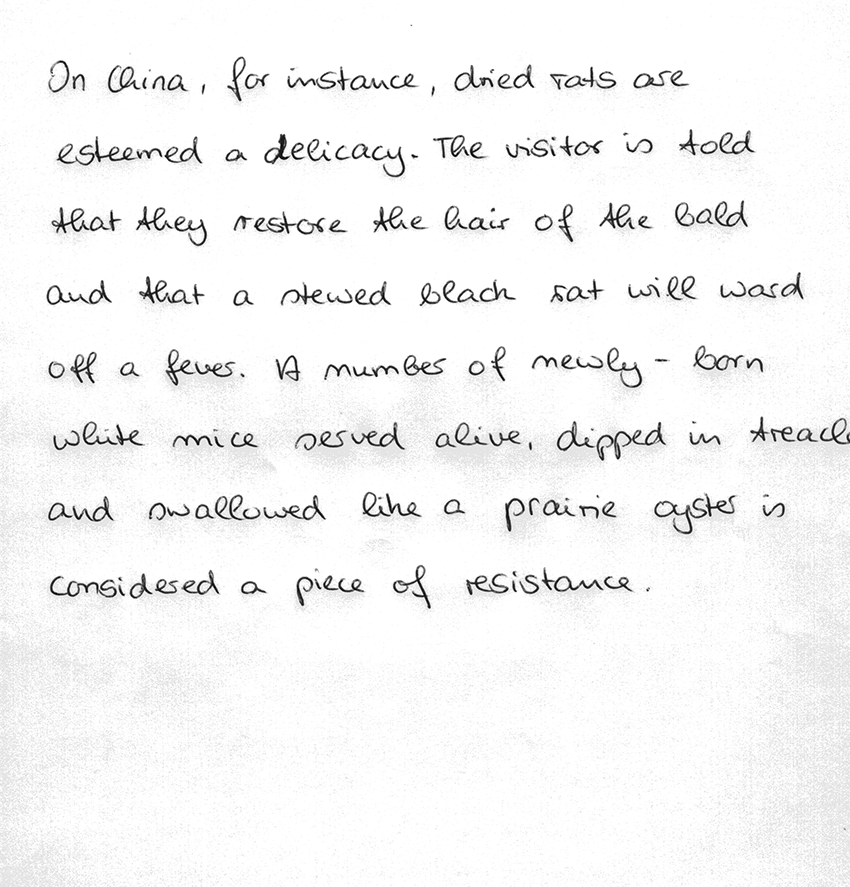 On China, for instance, dried rats are
esteemed a delicacy. The visitor is told
that they restore the hair of the bald
and that a stewed black rat will ward
off a fever. A number of newly - born
white mice served alive, dipped in treacle
and swallowed like a prairie oyster is
considered a piece of resistance.